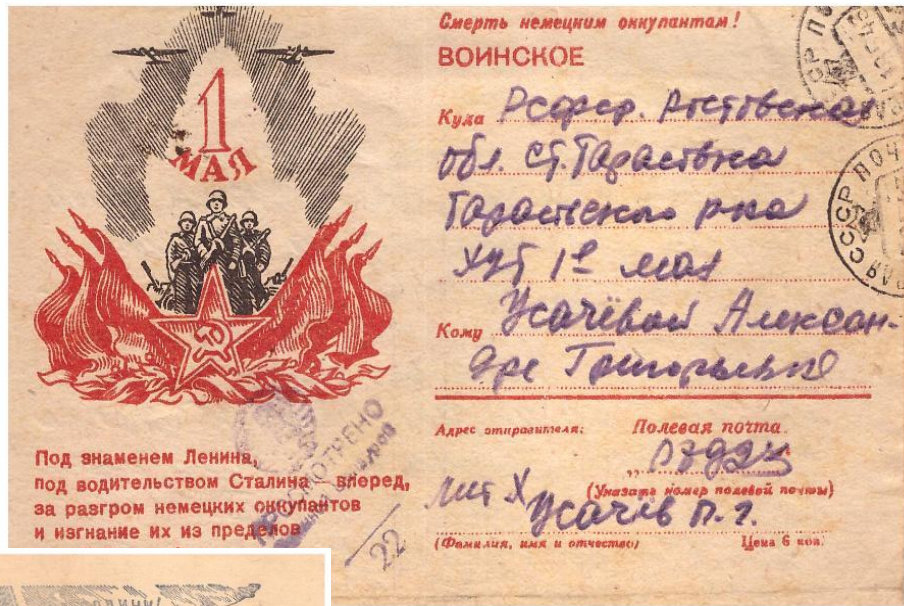 1
МАЯ
Под знаменем Ленина,
под водительством Сталина – вперед,
за разгром немецких оккупантов
и изгнание их из пределов
ПРОСМОТРЕНО
22
Смерть немецким оккупантам!
ВОИНСКОЕ
Куда Рсфср. Ростовская
обл. ст. Тарасовка
Тарасовского р-на
хут 1е мая
Кому Усачёвой Алексан-
дре Григорьевне
Адрес отправителя: Полевая почта
(Указать номер полевой почты)
лит Х Усачёв П. Г.
(Фамилия, имя и отчество) Цена 6 коп.
СССР ПОЧ